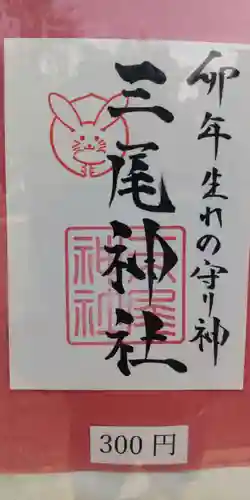 卯年生れの守り神
三尾神社
三尾神社
300円